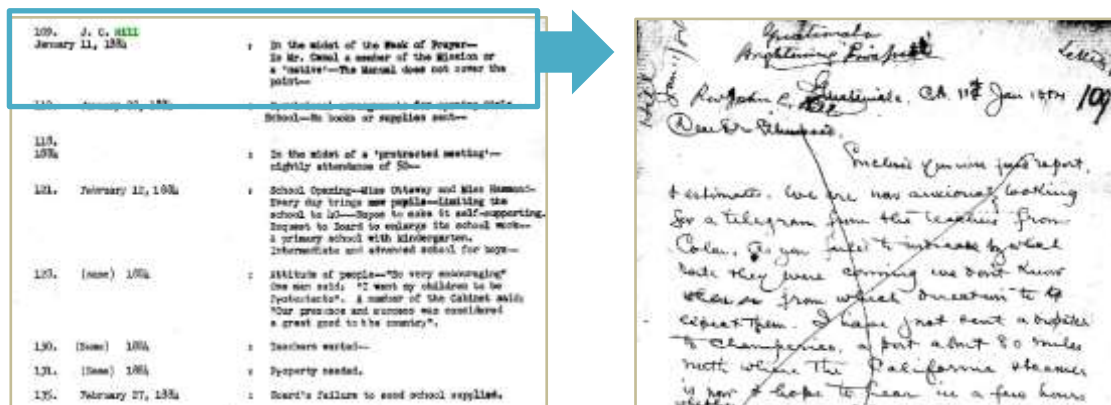 109. J. C. Hill
January 11, 1884 : In the midst of the Week of Prayer—
Is Mr. Canal a member of the Mission or
a 'native'—The Manual does not cover the
point—
School—No books or supplies sent—
118.
1884 : In the midst of a 'protracted meeting'—
nightly attendance of 50—
121. February 12, 1884 : School Opening—Miss Ottaway and Miss Hammond—
Every day brings new pupils—Limiting the
school to 40—Hopes to make it self-supporting.
Request to Board to enlarge its school work—
a primary school with kindergarten.
Intermediate and advanced school for boys—
128. (Same) 1884 : Attitude of people—"So very encouraging"
One man said: "I want my children to be
Protestants". A number of the Cabinet said:
"Our presence and success was considered
a great good to the country".
130. (Same) 1884 : Teachers wanted—
131. (Same) 1884 : Property needed.
135. February 27, 1884 : Board's failure to send school supplies.
Guatemala
Brightening Prospects
Letter
Rev John C. Hill Guatemala, C.A. 11th Jan 1884 109
Dear Dr
Enclosed you will find report,
& estimate. We are now anxiously looking
for a telegram from the teachers from
Colon. As you failed to indicate by what
boat they were coming we dont know
when or from which direction to
expect them. I have just sent a
to Champerico, a port about 80 miles
north where the California steamer
is now & hope to hear in a few hours